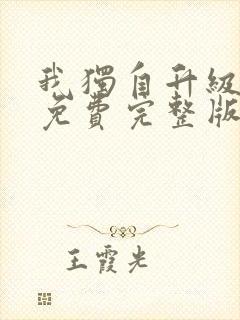 我獨自升級
免費完整版
王霞光